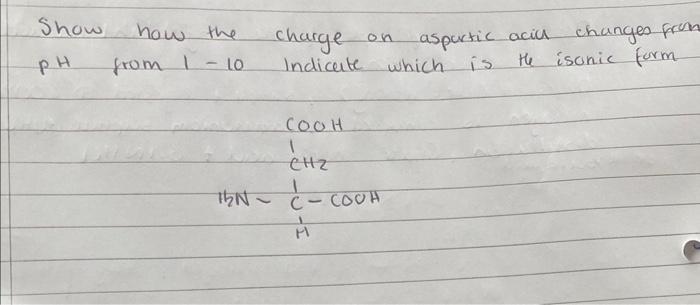 Show how the charge on aspartic acid changes from
pH from 1 - 10 Indicate which is the isonic form
COOH
CH2
H2N - C - COOH
H